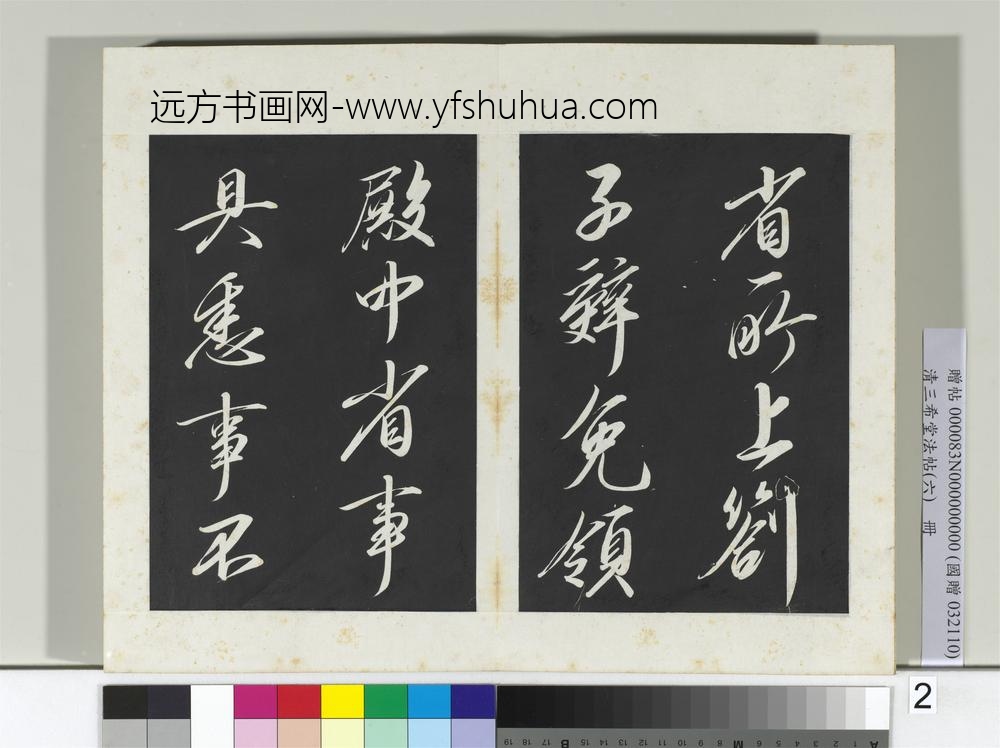 远方书画网-www.yfshuhua.com
省所上劄
子辞免領
殿中省事
具悉事不
贈帖 000083N000000000 (國贈 032110)
清三希堂法帖(六) 冊
2